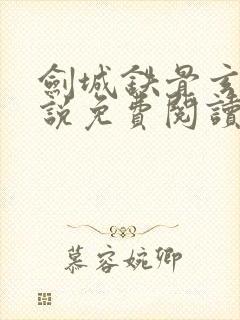 劍城鉄骨玄
說免費閱讀
慕容婉卿